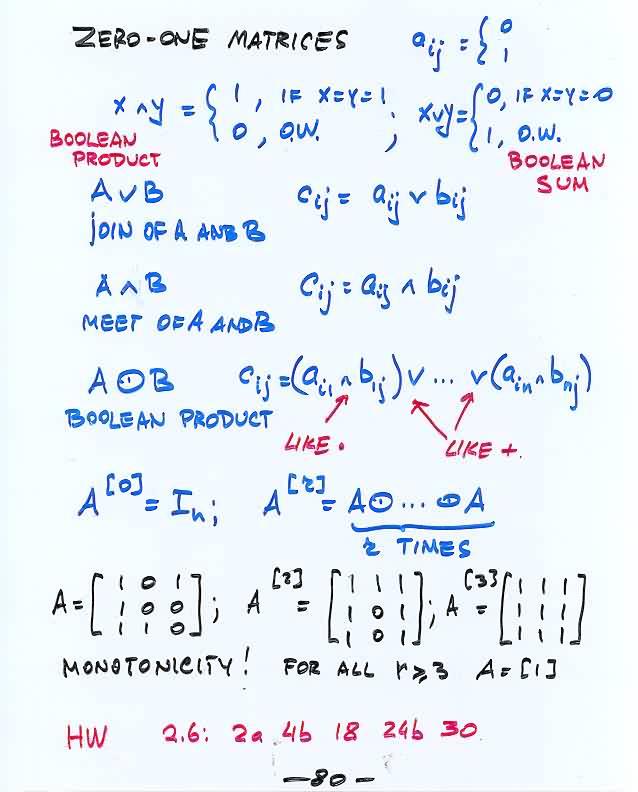 ZERO-ONE MATRICES aij = { 0 1
x ∧ y = { 1, IF X=Y=1 0, O.W. ; x∨y = { 0, IF X=Y=0 1, O.W.
BOOLEAN PRODUCT BOOLEAN SUM
A ∨ B cij = aij ∨ bij
JOIN OF A ANB B
A ∧ B cij = aij ∧ bij
MEET OF A AND B
A ⊙ B cij = (ai1 ∧ b1j) ∨ ... ∨ (ain ∧ bnj)
BOOLEAN PRODUCT
LIKE · LIKE +
A[0] = In; A[r] = A⊙...⊙A
r TIMES
A = [1 0 1; 1 0 0; 1 1 0]; A[2] = [1 1 1; 1 0 1; 1 0 1]; A[3] = [1 1 1; 1 1 1; 1 1 1]
MONOTONICITY! FOR ALL r ≥ 3 A = [1]
HW 2.6: 2a 4b 18 24b 30
-80-